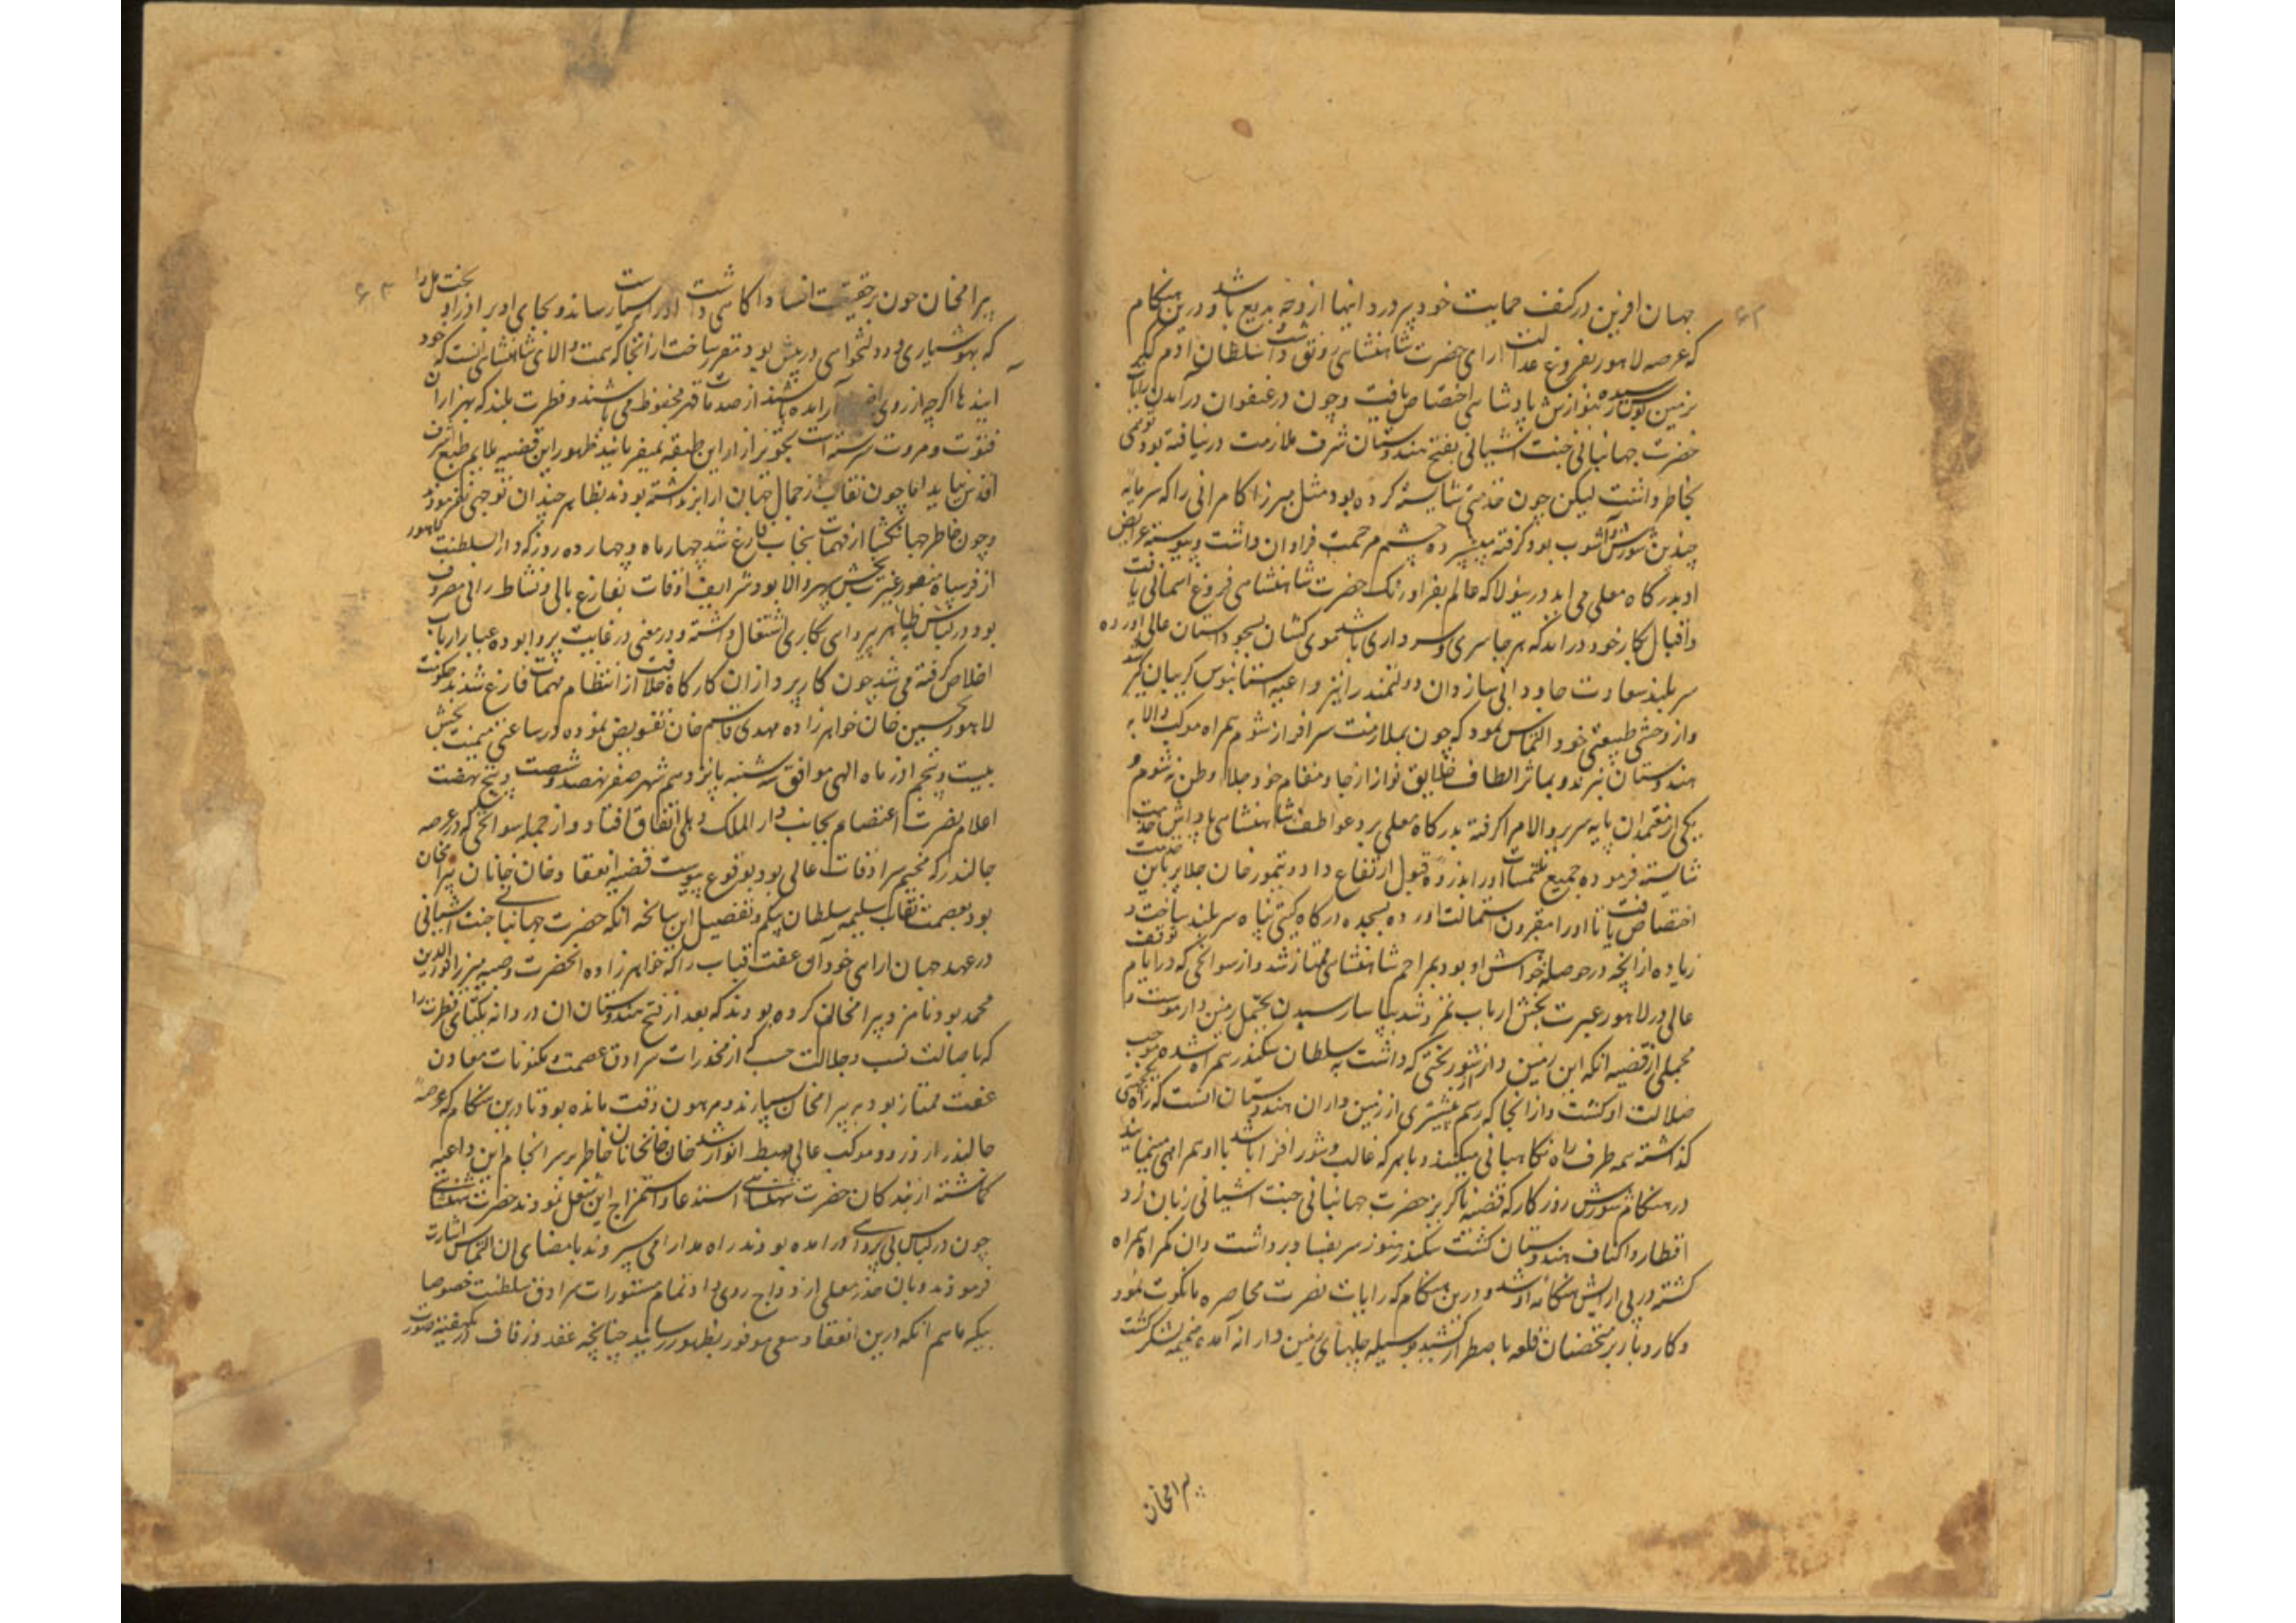 جهان افرین در کنف حمایت خود پرورد اینها از وجه بدیع باشد و درین هنگام
که عرصه لاهور بفروغ عدالت ارای حضرت شاهنشاهی رونق داشت سلطان ادم ککهر
بزمین بوس رسیده بنوازش پادشاهی اختصاص یافت و چون در عنفوان درآمدن رایات
حضرت جهانبانی جنت اشیانی بفتح هندوستان شرف ملازمت درنیافته بود توهمی
بخاطر داشت لیکن چون خدمتی شایسته کرده بود مثل میرزا کامرانی را که سرمایه
چندین شورش و آشوب بود گرفته سپرده چشم مرحمت فراوان داشت و پیوسته عرایض
او بدرگاه معلی می امد درینولا که عالم بفر اورنک حضرت شاهنشاهی فروغ اسمانی یافت
و اقبال بکار خود درامد که هر جا سری و سرداری باشد موی کشان بسجود استان عالی اورده
سربلند سعادت جاودانی سازد ان دولتمند را نیز داعیه استانبوس کریبان کیر شد
و از وحشی طبیعتی خود التماس نمود که چون بملازمت سرافراز شوم همراه موکب والا به
هندوستان نبرند و بماثر الطاف خلایق نواز از جا و مقام خود جلاء وطن نشوم و
یکی از معتمدان پایه سریر والا مرا کرفته بدرکاه معلی برد عواطف شاهنشاهی پاداش خدمت
شایسته فرموده جمیع ملتمسات اورا بذروه قبول ارتفاع داد و تیمور خان جلایر باین خدمت
اختصاص یافت تا اورا مقرون استمالت اورده بسجده درکاه کیتی پناه سربلند ساخت و
زیاده از انچه در حوصله خواهش او بود بمراحم شاهنشاهی ممتاز شد و از سوانحی که در ایام توقف
عالی در لاهور عبرت بخش ارباب تمرد شد بیاسا رسیدن بختمل زمین دار مو ست و
مجملی از قضیه انکه این زمین دار از شوربختی که داشت به سلطان سکندر همراه شده موجب
ضلالت او کشت و از انجا که رسم بیشتری از زمین داران هندوستان انست که راه یکجهتی
گذاشته همه طرف راه نکاهبانی میکنند و با هر که غالب و شور افزا باشد با او همراهی مینمایند
در هنکام شورش روزکار که قضیه ناکزیر حضرت جهانبانی جنت اشیانی زبان زد
اقطار و اکناف هندوستان کشت سکندر هنوز سر بفساد برداشت و ان کمراه همراه
کشته در پی ارایش هنکامه او شد و درین هنکام که رایات نصرت محاصره مانکوت نمود
و کار و بار بر متحصنان قلعه باضطرار کشید بوسیله حلیهای زمین دارانه آمده ضمیمه لشکر کشت
بیرامخان
بیرامخان چون بر حقیقت افساد اکاهی داشت اورا بسیاست رسانده و بجای او برادر او بخت مل را
که بهوشیاری و دولتخواهی در پیش بود مقرر ساخت از انجا که همت والای شاهنشاهی انست که خود
ایندها اکرچه از روی آرامده باشند از صدمات قهر محفوظ می باشند و فطرت بلند که بهزاران
فتوت و مروت سرشته است تجویز ازار این طبقه نمیفرمایند ظهور این قضیه ملایم طبع اشرف
اقدس نیامد اما چون نقاب از جمال جهان ارا برنداشته بودند بظاهر چندان توجهی نفرمود
و چون خاطر جهانکشا از مهمات پنجاب فارغ شد چهار ماه و چهارده روز که دار السلطنت لاهور
از فر سپاه منصور غیرت بخش سپهر والا بود شرایف اوقات بفارغ بالی و نشاط رانی مصروف
بود در لباس ظاهر به پروای کاری اشتغال داشته و در معنی در غایت پروا بوده عیار ارباب
اخلاص کرفته می شد چون کارپردازان کارکاه خلافت از انتظام مهمات فارغ شدند حکومت
لاهور بحسین خان خواهرزاده مهدی قاسم خان تفویض نموده در ساعتی میمنت بخش
بیست و پنجم اذر ماه الهی موافق سه شنبه پانزدهم شهر صفر نهصد و شصت و پنج نهضت
اعلام نصرت اعتصام بجانب دار الملک دهلی اتفاق افتاد و از جمله سوانحی که در عرصه
جالندر که مخیم سرادقات عالی بود بوقوع پیوست قضیه انعقاد خان خانان بیرامخان
بود بعصمت نقاب سلیمه سلطان بیکم و تفصیل این سانحه انکه حضرت جهانبانی جنت اشیانی
در عهد جهان ارایی خود آن عفت قباب را که خواهرزاده انحضرت و صبیه میرزا نورالدین
محمد بود نامزد بیرامخان کرده بودند که بعد از فتح هندوستان ان دردانه یکتای فطرت را
که باصالت نسب و جلالت حسب که از مخدرات سرادق عصمت و مکنونات معادن
عفت ممتاز بود به بیرامخان سپارند و مرهون وقت مانده بود تا درین هنکام که عرصه
جالندر از ورود موکب عالی مهبط انوار شد خان خانخانان خاطر بر سرانجام این داعیه
کماشته از بندکان حضرت شاهنشاهی استدعا و استمزاج این شغل نمودند حضرت شاهنشاهی
چون در لباس بی پروایی درامده بودند راه مدارا می سپردند بامضای ان التماس اشارت
فرمودند و بان مخدر معلی ازدواج روی داد و تمام مستورات سرادق سلطنت خصوصا
بیکه ماهم انکه درین انعقاد سعی موفور بظهور رسانید چنانچه عقد و زفاف در یکهفته صورت